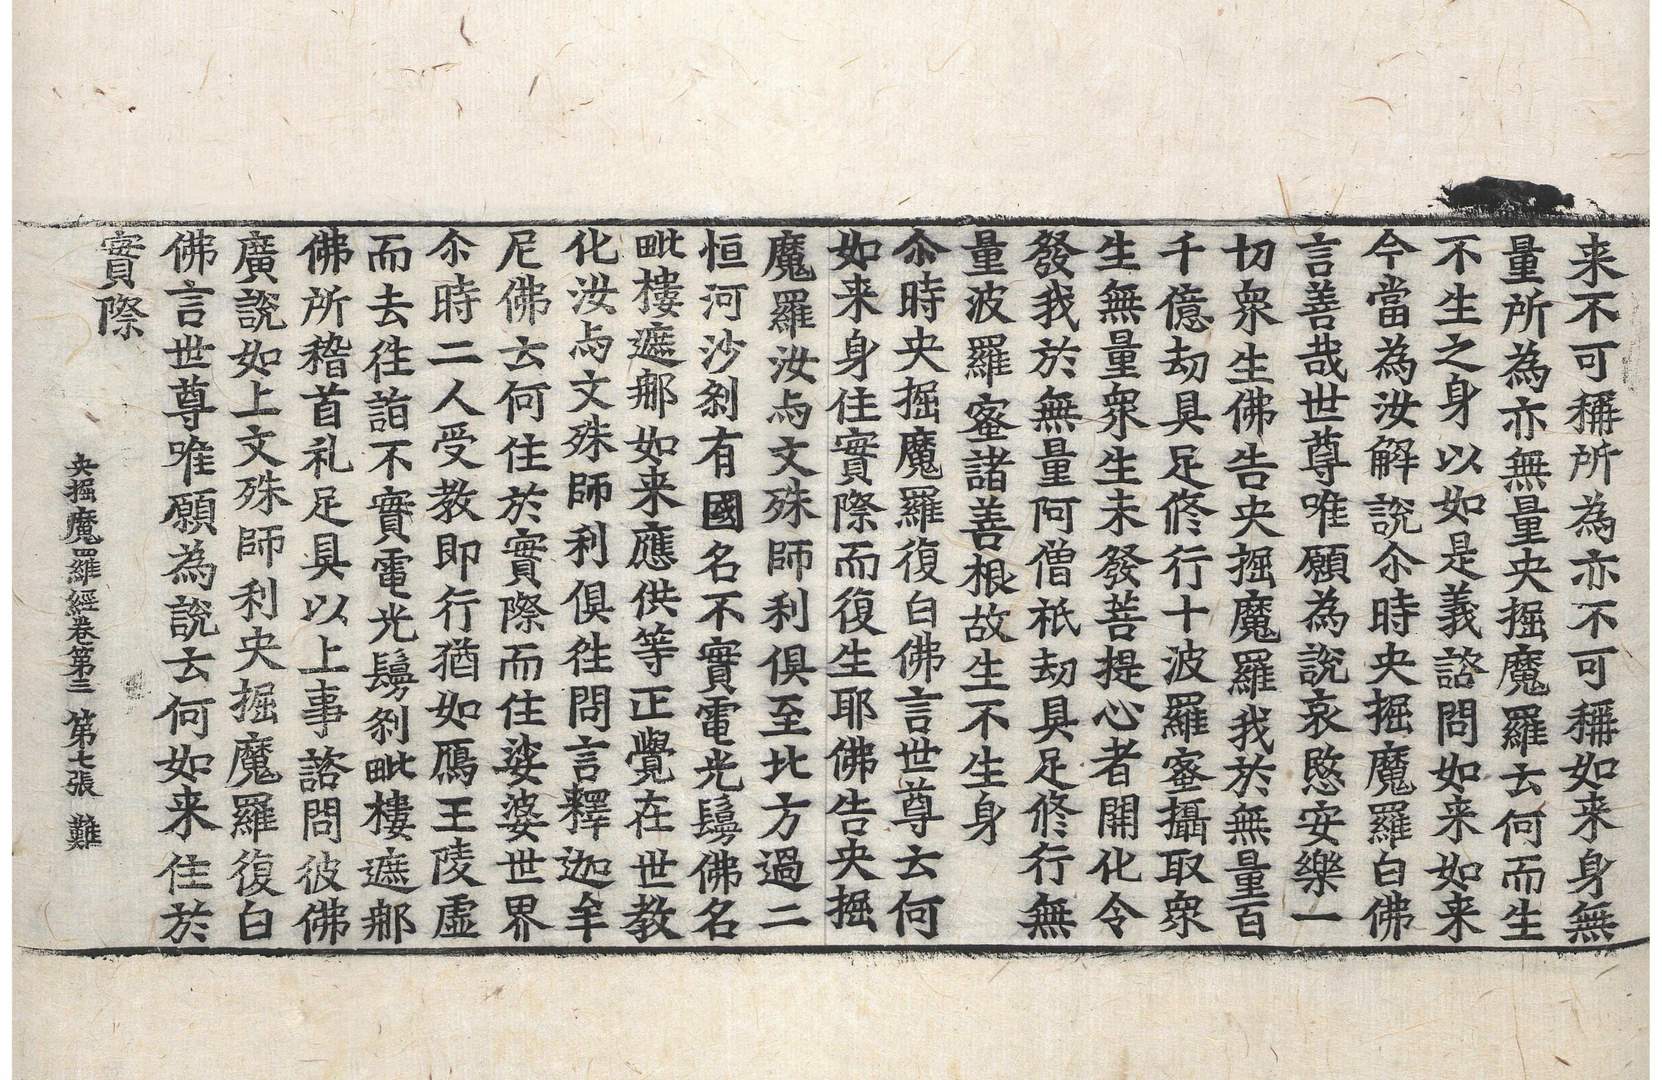 来不可稱所為亦不可稱如来身無
量所為亦無量央掘魔羅云何而生
不生之身以如是義諮問如来如来
今當為汝解說尒時央掘魔羅白佛
言善哉世尊唯願為說哀愍安樂一
切衆生佛告央掘魔羅我於無量百
千億劫具足修行十波羅蜜攝取衆
生無量衆生未發菩提心者開化令
發我於無量阿僧祇劫具足修行無
量波羅蜜諸善根故生不生身
尒時央掘魔羅復白佛言世尊云何
如来身住實際而復生耶佛告央掘
魔羅汝与文殊師利俱至北方過二
恒河沙刹有國名不實電光鬘佛名
毗樓遮那如来應供等正覺在世教
化汝与文殊師利俱往問言釋迦牟
尼佛云何住於實際而住娑婆世界
尒時二人受教即行猶如鴈王陵虛
而去往詣不實電光鬘刹毗樓遮那
佛所稽首礼足具以上事諮問彼佛
廣說如上文殊師利央掘魔羅復白
佛言世尊唯願為說云何如来住於
實際
央掘魔羅經卷第三 第七張 難